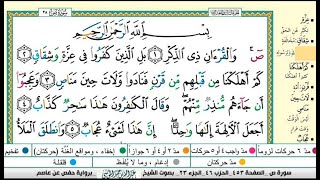 بِسْمِ ٱللَّهِ ٱلرَّحْمَٰنِ ٱلرَّحِيمِ
صٓ ۚ وَٱلْقُرْءَانِ ذِى ٱلذِّكْرِ ١ بَلِ ٱلَّذِينَ كَفَرُوا۟ فِى عِزَّةٍ وَشِقَاقٍ ٢
كَمْ أَهْلَكْنَا مِن قَبْلِهِم مِّن قَرْنٍ فَنَادَوا۟ وَّلَاتَ حِينَ مَنَاصٍ ٣ وَعَجِبُوٓا۟
أَن جَآءَهُم مُّنذِرٌ مِّنْهُمْ ۖ وَقَالَ ٱلْكَٰفِرُونَ هَٰذَا سَٰحِرٌ كَذَّابٌ ٤
أَجَعَلَ ٱلْءَالِهَةَ إِلَٰهًا وَٰحِدًا ۖ إِنَّ هَٰذَا لَشَىْءٌ عُجَابٌ ٥ وَٱنطَلَقَ ٱلْمَلَأُ
مدّ ٦ حركات لزوماً مدّ ٢ أو ٤ أو ٦ جوازاً إخفاء، ومواقع الغنّة (حركتان) تفخيم
مدّ حركتان إدغام، وما لا يُلفظ قلقلة
سورة ص الصفحة ٤٥٣ الحزب ٤٦ الجزء ٢٣ بصوت الشيخ برواية حفص عن عاصم